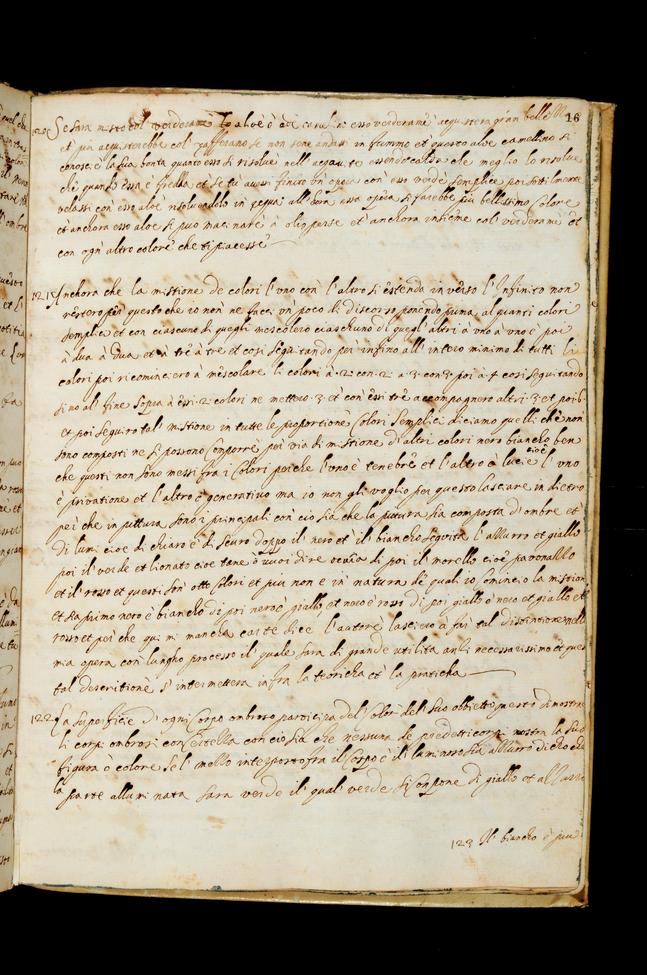 16
120 Se sara misto col verderame l'aloe caballino esso verderame aquistera gran bellezza
et piu aquisterebbe col zafferano se non sene andassi in fummo et questo aloe camellino si
conosce la sua bonta quanto esso si risolve nell acqua vite essendo calda che meglio lo risolve
che quando essa è fredda et se tu avessi finito un opera con esso verde semplice poi sottilmente
velassi con esso aloe risolvendolo in acqua all' hora essa opera si farebbe più bellissimo colore
et anchora esso aloe si può macinare à olio per se et anchora insieme col verderame et
con ogn' altro colore che ti piacesse
121 Anchora che la mistione de colori l'uno con l'altro si estenda in verso l'Infinito non
resterò per questo che io non ne facci un' poco di discorso ponendo prima alquanti colori
semplici et con ciascuno di quegli mescolerò ciaschuno di quegl' altri à uno à uno e poi
à dua à dua et à tre à tre et cosi seguitando per insino all' intero numero di tutti li
colori poi ricomincierò à mescolare li colori à .2. con .2. a .3. con 3 poi a 4 cosi seguitando
sino al fine sopra à essi .2. colori ne mettero .3. et con essi tre accompagnero altri .3. et poi 6
et poi seguiro tal' mistione in tutte le proportione Colori Semplici diciamo quelli che non
sono composti ne si possono comporre per via di mistione di altri colori nero biancho ben
che questi non sono messi fra i Colori perche l'uno è tenebre et l'altro è luce cioè l'uno
è privatione et l'altro è generativo ma io non gli voglio per questo lasciare in dietro
per che in pittura sono i principali con cio sia che la pittura sia composta di ombre et
di lumi cioe di chiaro e di scuro doppo il nero et il biancho seguita l'azurro et giallo
poi il verde et lionato cioe tane ò vuoi dire ocria di poi il morello cioè pavonazzo
et il rosso et questi son otto colori et piu non è in natura de quali io comincio la mistione
et sia primo nero è biancho di poi nero è giallo et nero è rosso di poi giallo è nero et giallo et
rosso et per che qui mi mancha carte dice l'autore lascierò à far tal distintione nella
mia opera con lungho processo il quale sara di grande utilita anzi necessarissimo et questa
tal descritione s'intermettera infra la teoricha et la praticha
122 La superficie d'ogni Corpo ombroso participa del Color del suo obbietto questo dimostra
li corpi ombrosi con certezza con cio sia che nessuno de predetti corpi mostra la sua
figura ò colore se l' mezzo interposto fra il Corpo è il luminoso sia azurro dico che
la parte alluminata sara verde il qual' verde si compone di giallo et all azurro
123 Il biancho è piu